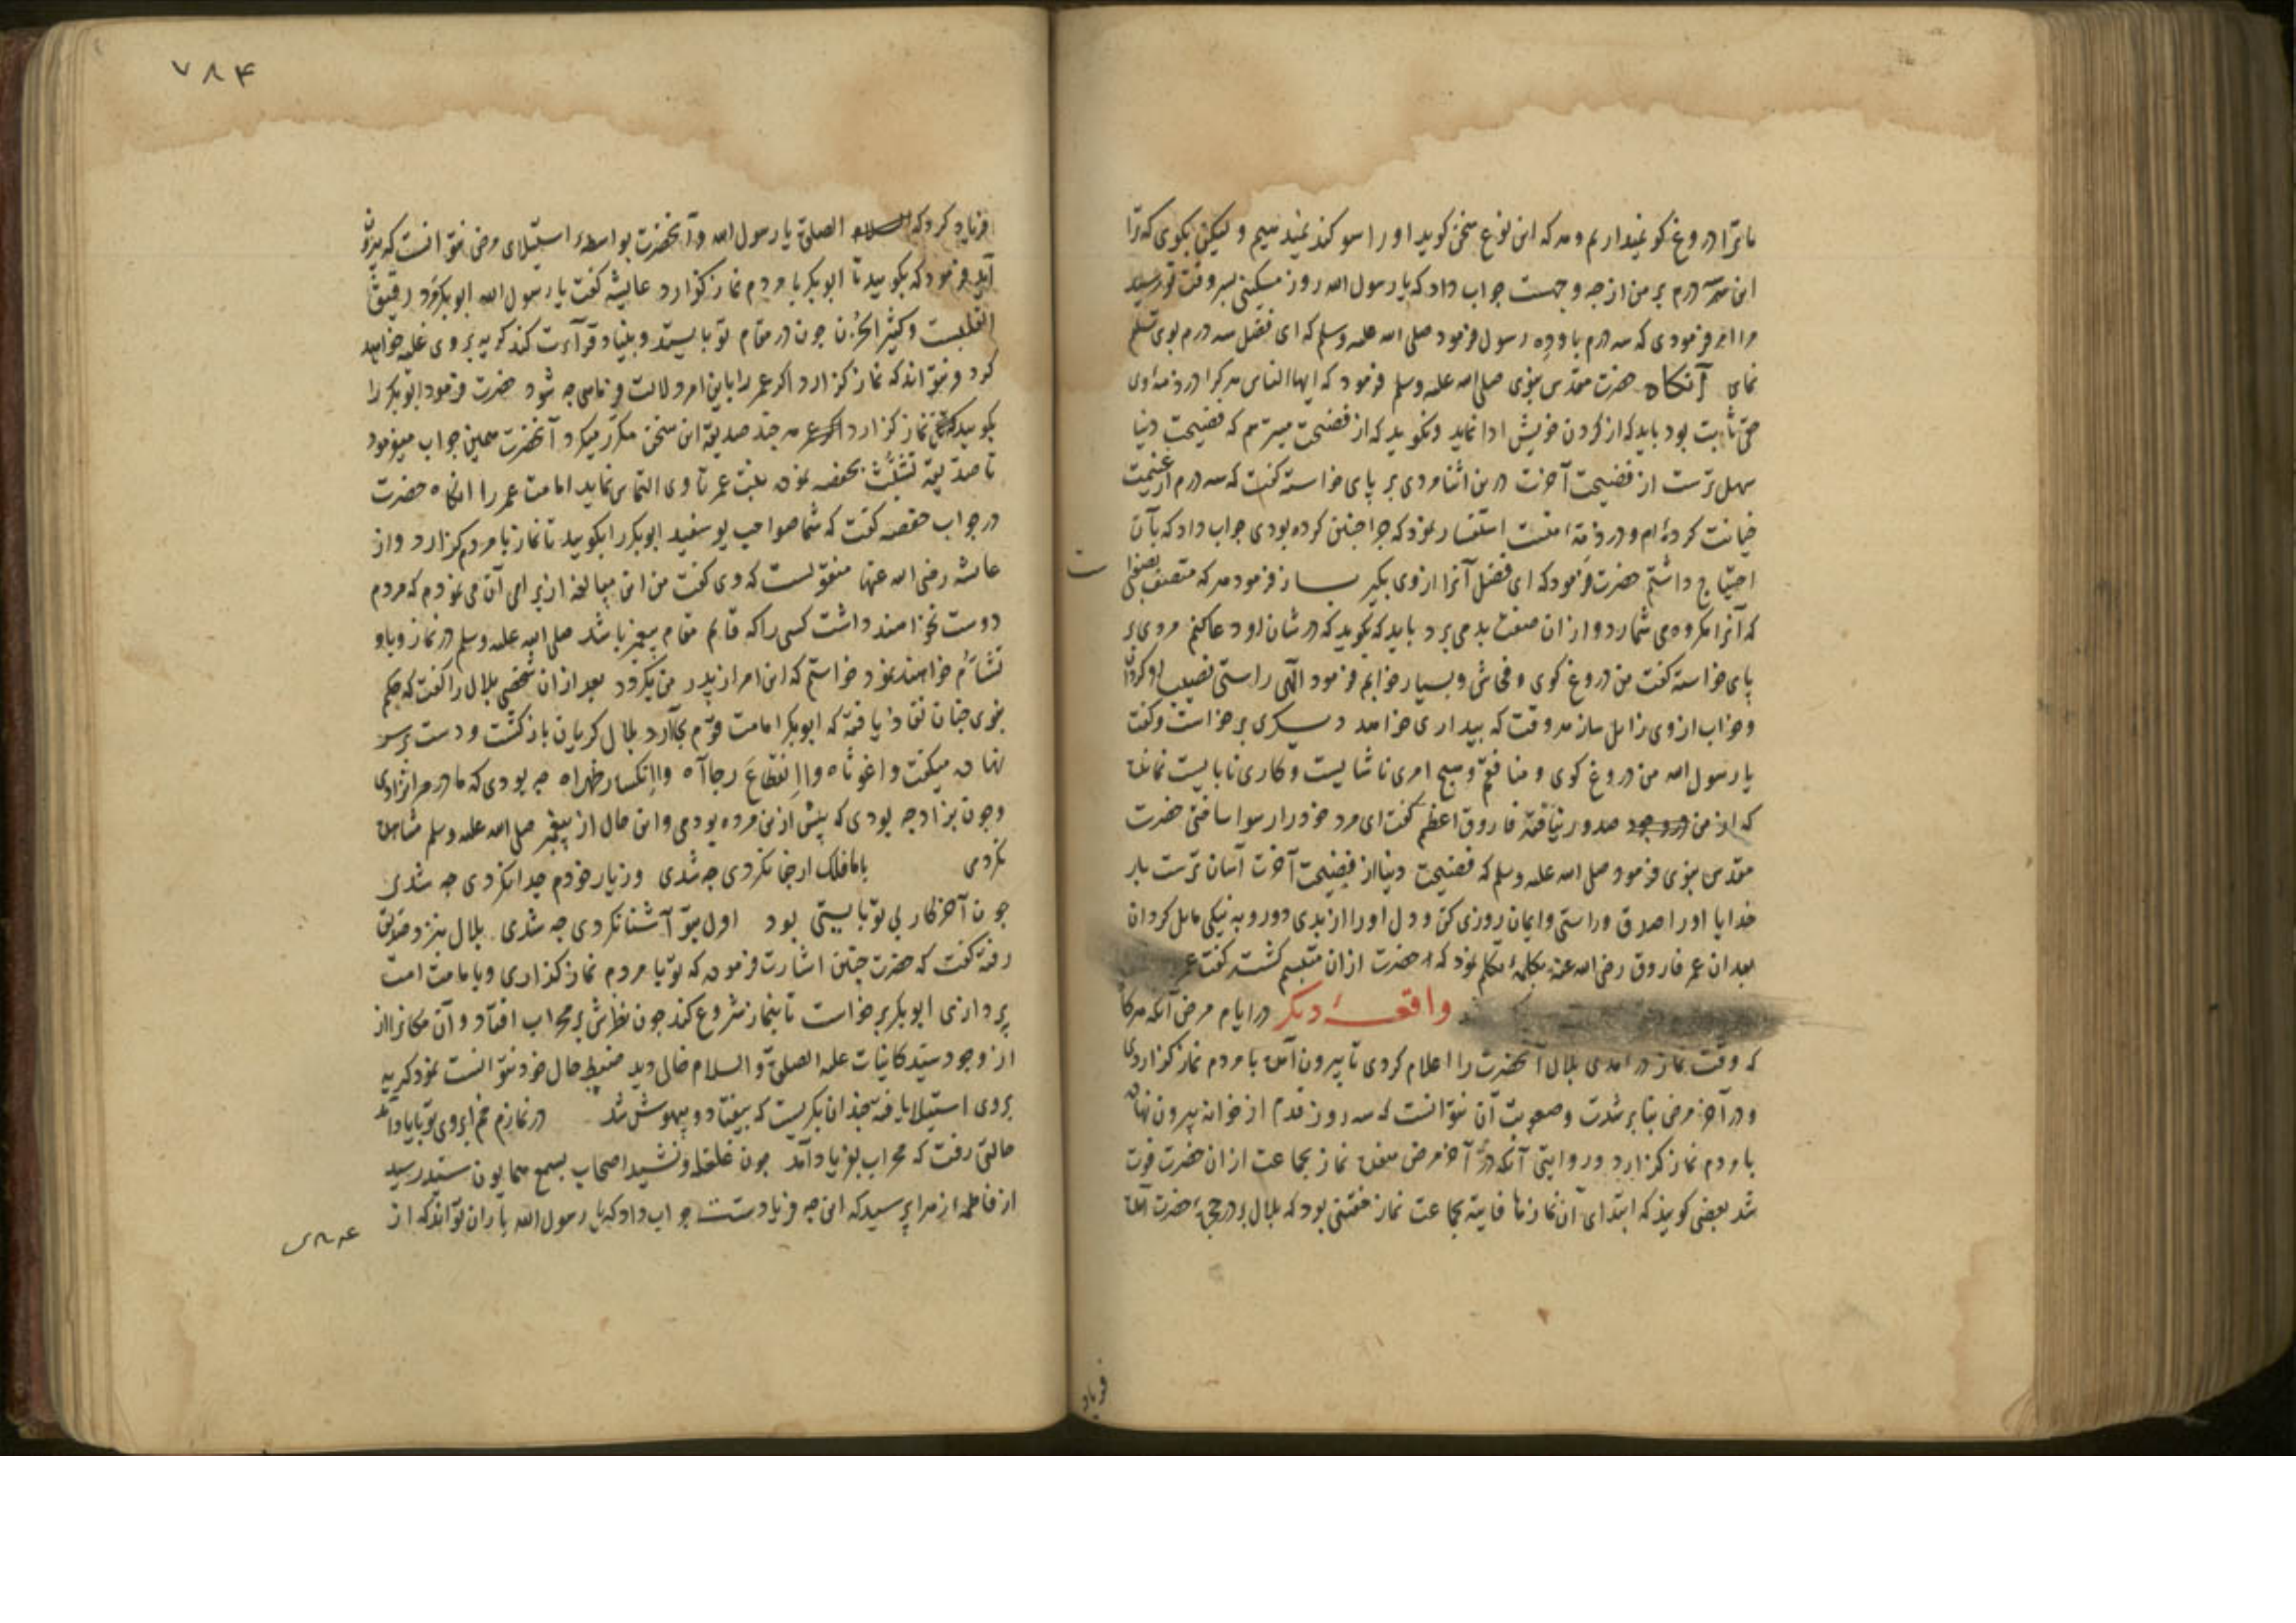 ما ترا دروغ کو نمیداریم و هر که این نوع سخن کوید او را سوکند نمیدهیم و لیکن بکوی که ترا
این سه درم بر من از چه وجهست جواب داد که یا رسول الله روزی مسکینی بر وقت تو رسید
مرا امر فرمودی که سه درم باو ده رسول فرمود صلی الله علیه وسلم که ای فضل سه درم بوی تسلیم
نمای آنکاه حضرت مقدس نبوی صلی الله علیه وسلم فرمود که ایها الناس هر کرا در ذمهٔ وی
حق ثابت بود باید که از کردن خویش ادا نماید ونکوید که از فضیحت میترسم که فضیحت دنیا
سهل ترست از فضیحت آخرت درین اثنا مردی بر پای خاسته کفت که سه درم از غنیمت
خیانت کرده ام و در ذمهٔ منست استفسار نمود که چرا چنین کرده بودی جواب داد که بآن
احتیاج داشتم حضرت فرمود که ای فضل آنرا از وی بکیر باز فرمود هر که متصف بصفتی
که آنرا مکروه می شمارد و از ان صفت بد می برد باید که بکوید که در شان او دعا کنم مردی بر
پای خاسته کفت من دروغ کوی و فحاش و بسیار خوابم فرمود الهی راستی نصیب او کردان
و خواب از وی زایل ساز هر وقت که بیداری خواهد دیکری برخاست وکفت
یا رسول الله من دروغ کوی و منافقم و هیچ امری ناشایست و کاری نابایست نمانده
که از من در وجود صدور نیافته فاروق اعظم کفت ای مرد خود را رسوا ساختی حضرت
مقدس نبوی فرمود صلی الله علیه وسلم که فضیحت دنیا از فضیحت آخرت آسان ترست بار
خدایا او را صدق و راستی و ایمان روزی کن و دل او را از بدی دور و به نیکی مایل کردان
بعد ان عمر فاروق رضی الله عنه بکلمهٔ تکلم نمود که حضرت از ان متبسم کشت کفت عمر
واقعهٔ دیکر در ایام مرض آنکه هرکاه
که وقت نماز در آمدی بلال آنحضرت را اعلام کردی تا بیرون آمده با مردم نماز کزاردی
و در آخر مرض بنابر شدت وصعوبت آن نتوانست که سه روز قدم از خوانه بیرون نهاده
با مردم نماز کزارد و روایتی آنکه در آخر مرض هفده نماز بجماعت از ان حضرت فوت
شد بعضی کویند که ابتدای آن نمازها فایته بجماعت نماز خفتنی بود که بلال بر در حجرهٔ حضرت آمده
فریاد
۷۸۴
فریاد کرد که السلام الصلوة یا رسول الله و آنحضرت بواسطهٔ استیلای مرض نتوانست که بیرون
آید فرمود که بکویید تا ابوبکر با مردم نماز کزارد عایشه کفت یا رسول الله ابوبکر مرد رقیق
القلبست و کثیر الحزن چون در مقام تو بایستد و بنیاد قرآءت کند کریه بر وی غلبه خواهد
کرد و نتواند که نماز کزارد اکر عمر را باین امر دلالت فرمایی چه شود حضرت فرمود ابوبکر را
بکویید نماز کزارد هر چند صدیقه این سخن مکرر میکرد آنحضرت همین جواب میفرمود
تا صدیقه تشبث بحفصه نموده بنت عمر تا وی التماس نماید امامت عمر را انکاه حضرت
در جواب حفصه کفت که شما صواحب یوسفید ابوبکر را بکویید تا نماز با مردم کزارد و از
عایشه رضی الله عنها منقولست که وی کفت من این مبالغه از برای آن می نمودم که مردم
دوست نخواهند داشت کسی را که قایم مقام پیغمبر باشد صلی الله علیه وسلم در نماز و باو
تشأم خواهند نمود خواستم که این امر از پدر من بکردد بعد ازان شخصی بلال را کفت که حکم
نبوی چنان نفاذ یافته که ابوبکر امامت قوم بجا آرد بلال کریان بازکشت و دست بر سر
نهاده میکفت واغوثاه واانقطاع رجاآه واانکسار ظهراه چه بودی که مادر مرا نزادی
وچون بزاد چه بودی که پیش ازین مرده بودمی واین حال از پیغمبر صلی الله علیه وسلم مشاهده
نکردمی با ما فلک ارجفا نکردی چه شدی وز یار خودم جدا نکردی چه شدی
چون آخر کار بی تو بایستی بود اول بتو آشنا نکردی چه شدی بلال نزد صدیق
رفته کفت که حضرت چنین اشارت فرموده که تو با مردم نماز کزاری و بامامت امت
پردازی ابوبکر برخاست تا بنماز شروع کند چون نظرش بر محراب افتاد و آن مکانرا از
از وجود سید کاینات علیه الصلوة والسلام خالی دید ضبط حال خود نتوانست نمود کریه
بر وی استیلا یافته چندان بکریست که بیفتاد و بیهوش شد در نمازم خم ابروی تو با یاد آمد
حالتی رفت که محراب بفریاد آمد چون غلغله و نشید اصحاب بسمع همایون سید رسید
از فاطمهٔ زهرا پرسید که این چه فریادست جواب داد که یا رسول الله یاران تواند که از